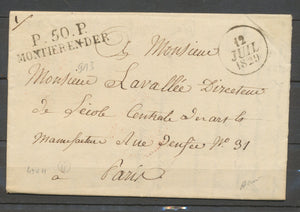 P. 50. P.
MONTIERENDER
12
JUIL
1829
Monsieur
Monsieur Lavallée Directeur
de l'école Centrale des arts
Manufacture Rue N° 31
à Paris